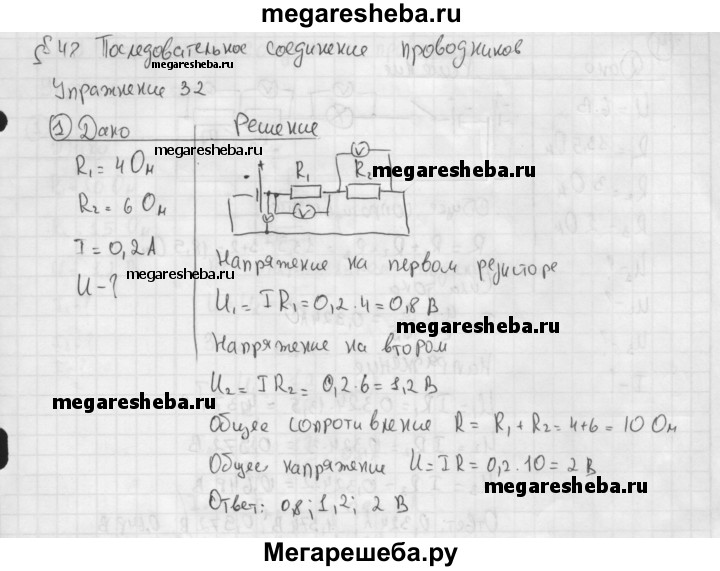 megaresheba.ru
§ 48 Последовательное соединение проводников
megaresheba.ru
Упражнение 32
1) Дано
Решение
megaresheba.ru
R₁ = 4 Ом
R₂ = 6 Ом
I = 0,2 А
U - ?
R₁
R₂
V
V
megaresheba.ru
megaresheba.ru
Напряжение на первом резисторе
U₁ = IR₁ = 0,2 · 4 = 0,8 В
megaresheba.ru
Напряжение на втором
U₂ = IR₂ = 0,2 · 6 = 1,2 В
megaresheba.ru
Общее сопротивление R = R₁ + R₂ = 4+6 = 10 Ом
Общее напряжение U = IR = 0,2 · 10 = 2 В
megaresheba.ru
Ответ: 0,8; 1,2; 2 В
Мегарешеба.ру